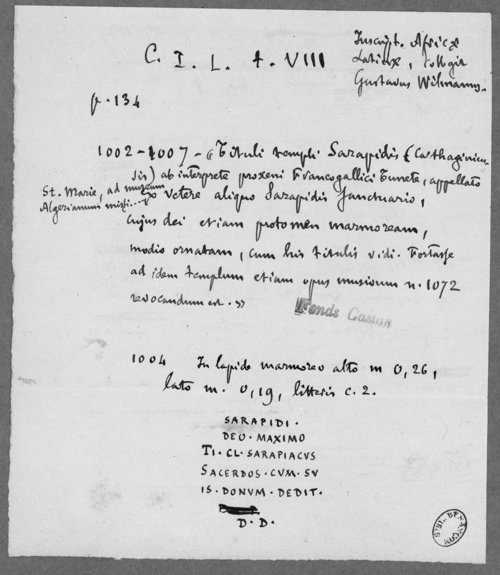 C. I. L. t. VIII
Inscript. Africæ
Latinæ, collegit
Gustavus Wilmanns.
p. 134
1002-1007 - « Tituli templi Sarapidis (Carthaginien
sis) ab interprete proxeni Francogallici Tunete, appellato
St. Marie, ad museum
Algerianum missi...
ex vetere aliquo Sarapidis sanctuario,
cujus dei etiam protomen marmoream,
modio ornatam, cum his titulis vidi. Fortasse
ad idem templum etiam opus musivum n. 1072
revocandum est. »
Fonds Castan
1004 In lapide marmoreo alto m 0,26,
lato m. 0,19, litteris c. 2.
SARAPIDI.
DEO. MAXIMO
TI. CL. SARAPIACUS
SACERDOS. CUM. SU
IS. DONUM. DEDIT.
D. D.